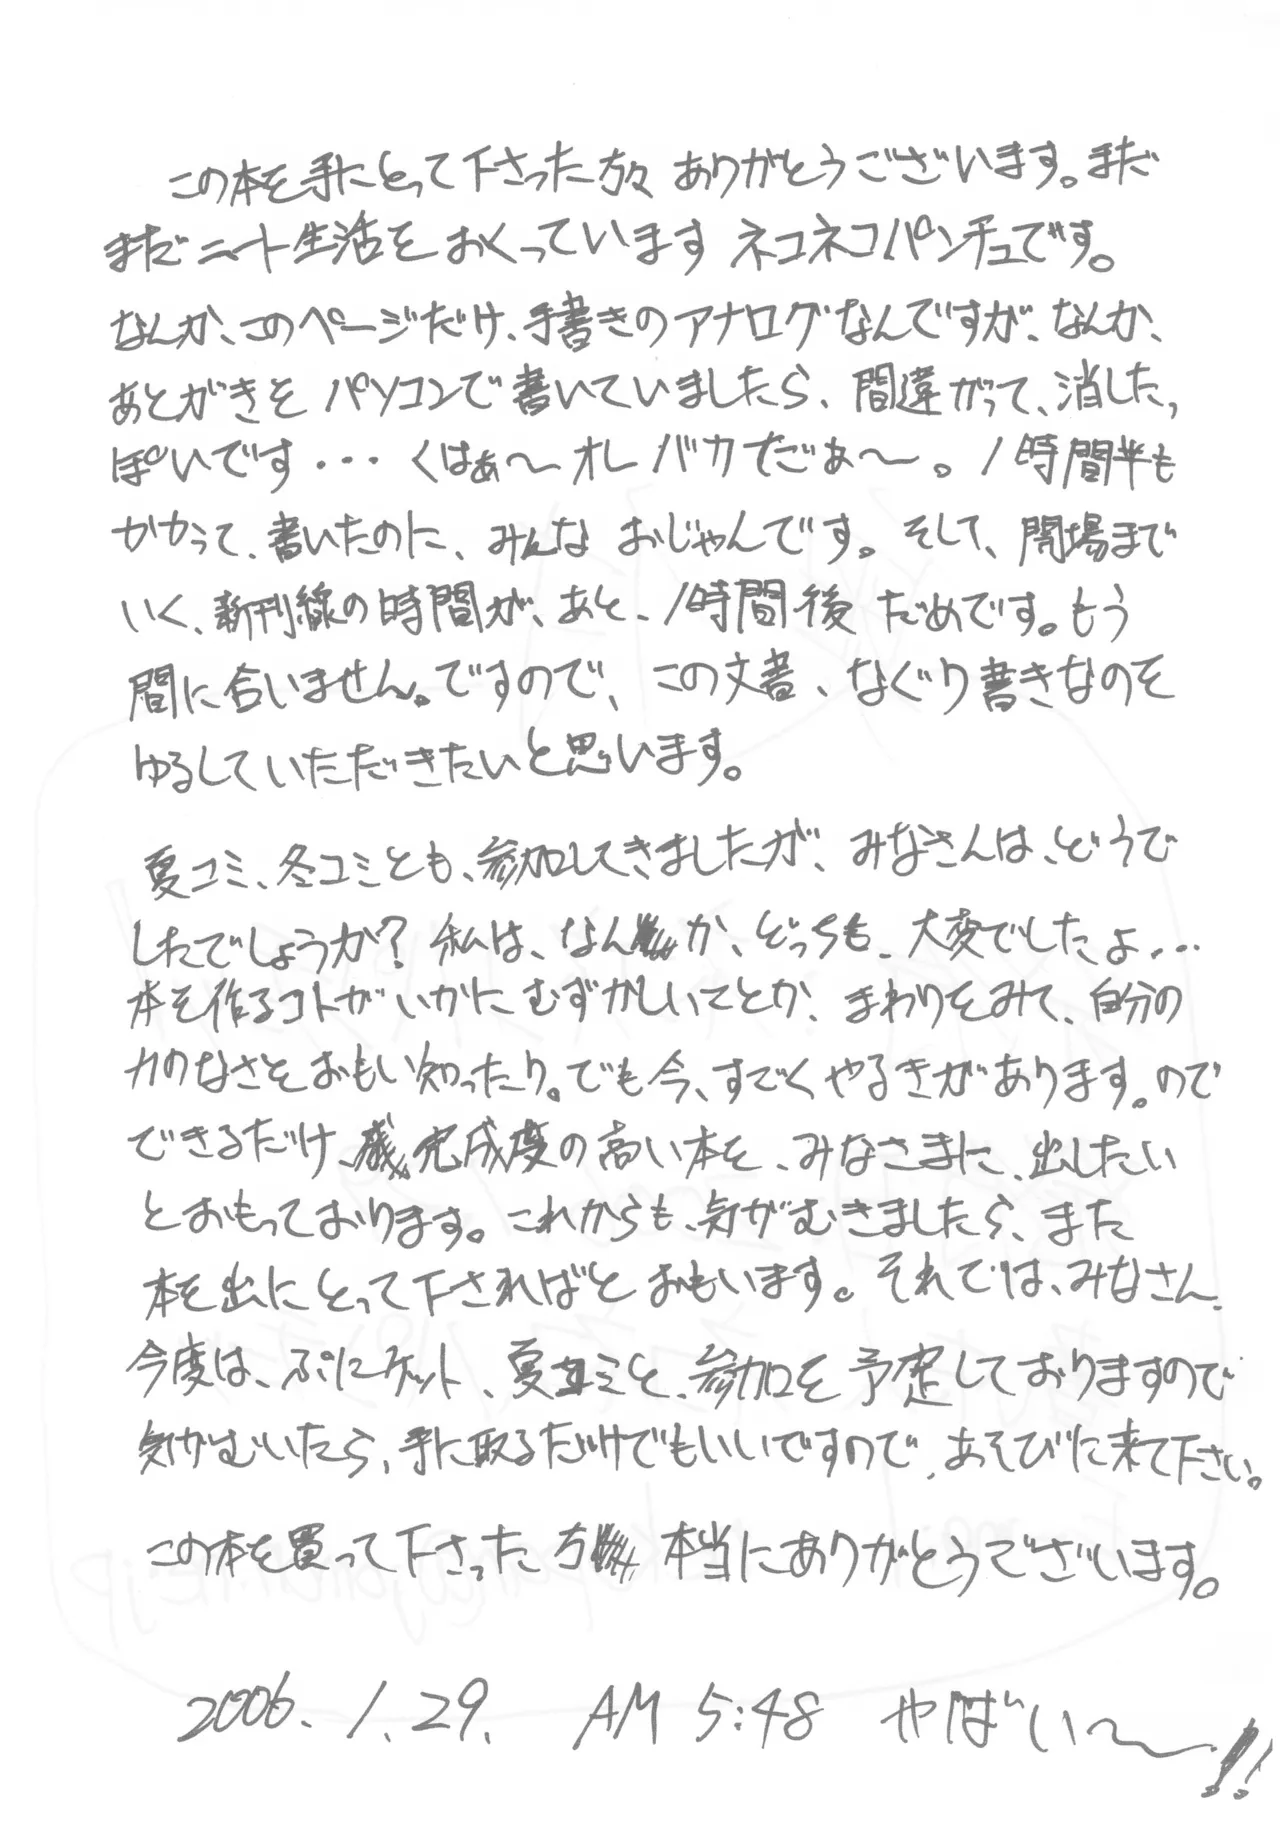 この本を手にとって下さった方々 ありがとうございます。まだ
まだニート生活をおくっています ネコネコパンチュです。
なんか、このページだけ、手書きのアナログなんですが、なんか、
あとがきをパソコンで書いていましたら、間違がって、消したっ
ぽいです・・・くはぁ〜オレバカだぁ〜。1時間半も
かかって、書いたのに、みんなおじゃんです。そして、開場まで
いく、新刊線の時間が、あと、1時間後 だめです。もう
間に合いません。ですので、この文書、なぐり書きなのを
ゆるしていただきたいと思います。
夏コミ、冬コミとも、参加してきましたが、みなさんは、どうで
したでしょうか？私は、なんか、どっちも、大変でしたよ...
本を作るコトがいかにむずかしいてとか、まわりをみて、自分の
力のなさをおもい知ったり。でも今、すごくやるきがあります。ので
できるだけ、完成度の高い本を、みなさまに、出したい
とおもっております。これからも、気がむきましたら、また
本を出にとって下さればとおもいます。それでは、みなさん、
今度は、ぷにケット、夏コミと、参加を予定しておりますので
気がむいたら、手に取るだけでもいいですので、あそびに来て下さい。
この本を買って下さった方 本当にありがとうございます。
2006. 1. 29. AM 5:48 やばい〜!!